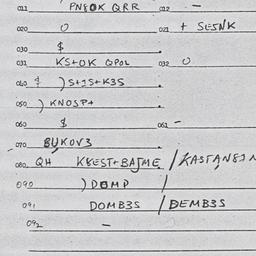 011 PN&OK QRR 012 -
020 O 021 + SESNK
030 $
031 KS+OK QPOL 032 O
040 )S+JS+K3S
050 ) KNOSP+
060 $ 061 -
070 BUKOV3
080 QH K&EST+BAJME / KASTAN&J
090 ) DOMP
091 DOMB3S / DEMB3S
092 -